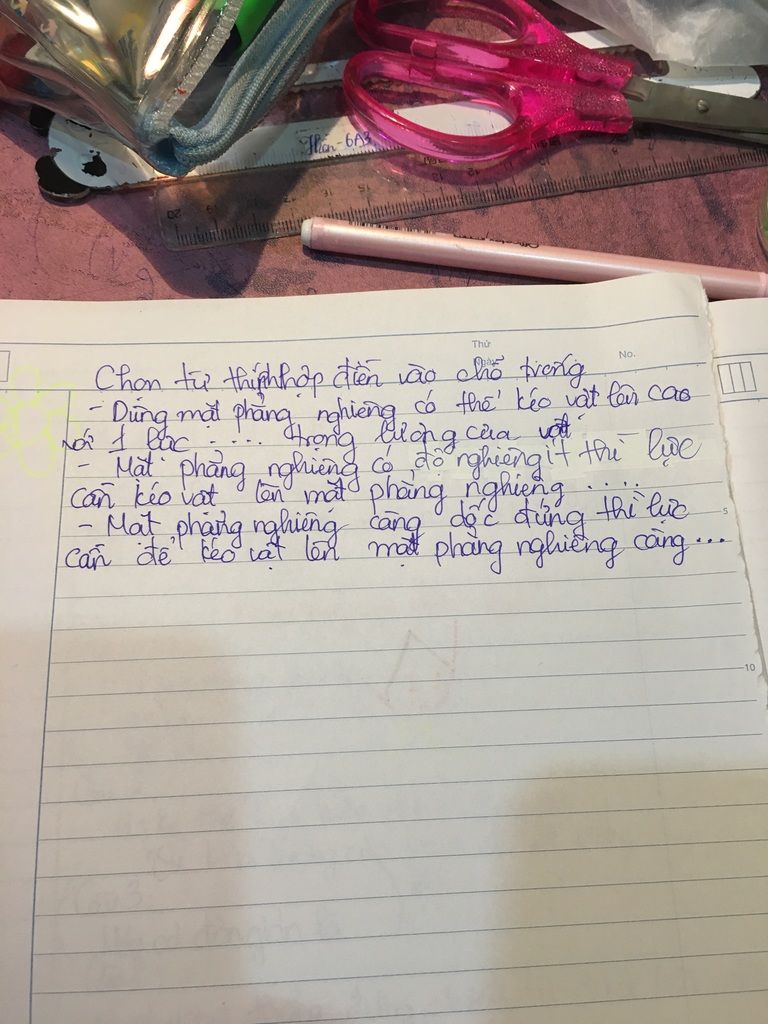 Hiền-6A3
20 19 16 15
Thứ
Ngày
No.
Chọn từ thích hợp điền vào chỗ trống
- Dùng mặt phẳng nghiêng có thể kéo vật lên cao
với 1 lực .... trọng lượng của vật
- Mặt phẳng nghiêng có độ nghiêng ít thì lực
cần kéo vật lên mặt phẳng nghiêng .....
- Mặt phẳng nghiêng càng dốc đứng thì lực
cần để kéo vật lên mặt phẳng nghiêng càng ...
5
10